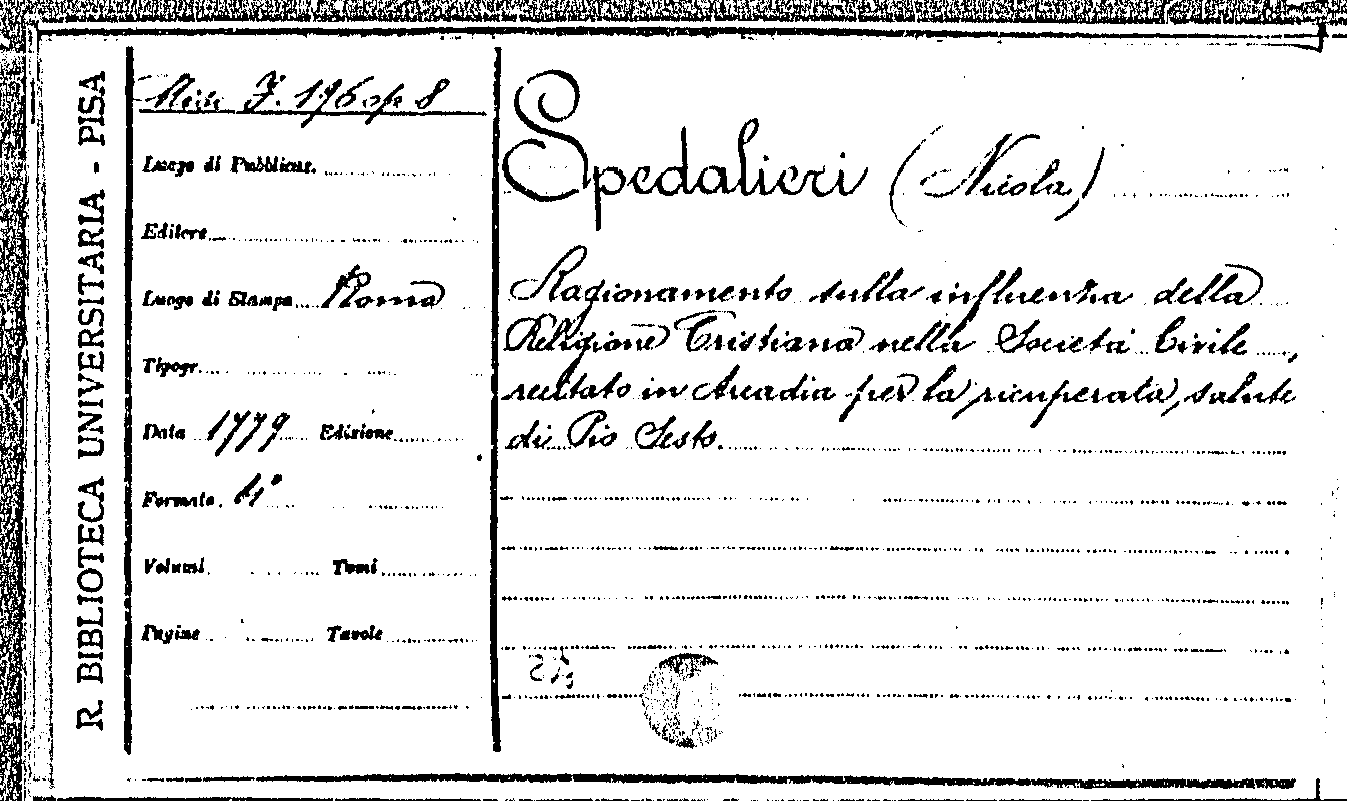 R. BIBLIOTECA UNIVERSITARIA - PISA
Misc. F. 196 op 8
Luogo di Pubblicaz.
Editore
Luogo di Stampa Roma
Tipogr.
Data 1779 Edizione
Formato 4°
Volumi Tomi
Pagine Tavole
Spedalieri (Nicola)
Ragionamento sulla influenza della
Religione Cristiana nella Società Civile,
recitato in Arcadia per la ricuperata salute
di Pio Sesto.